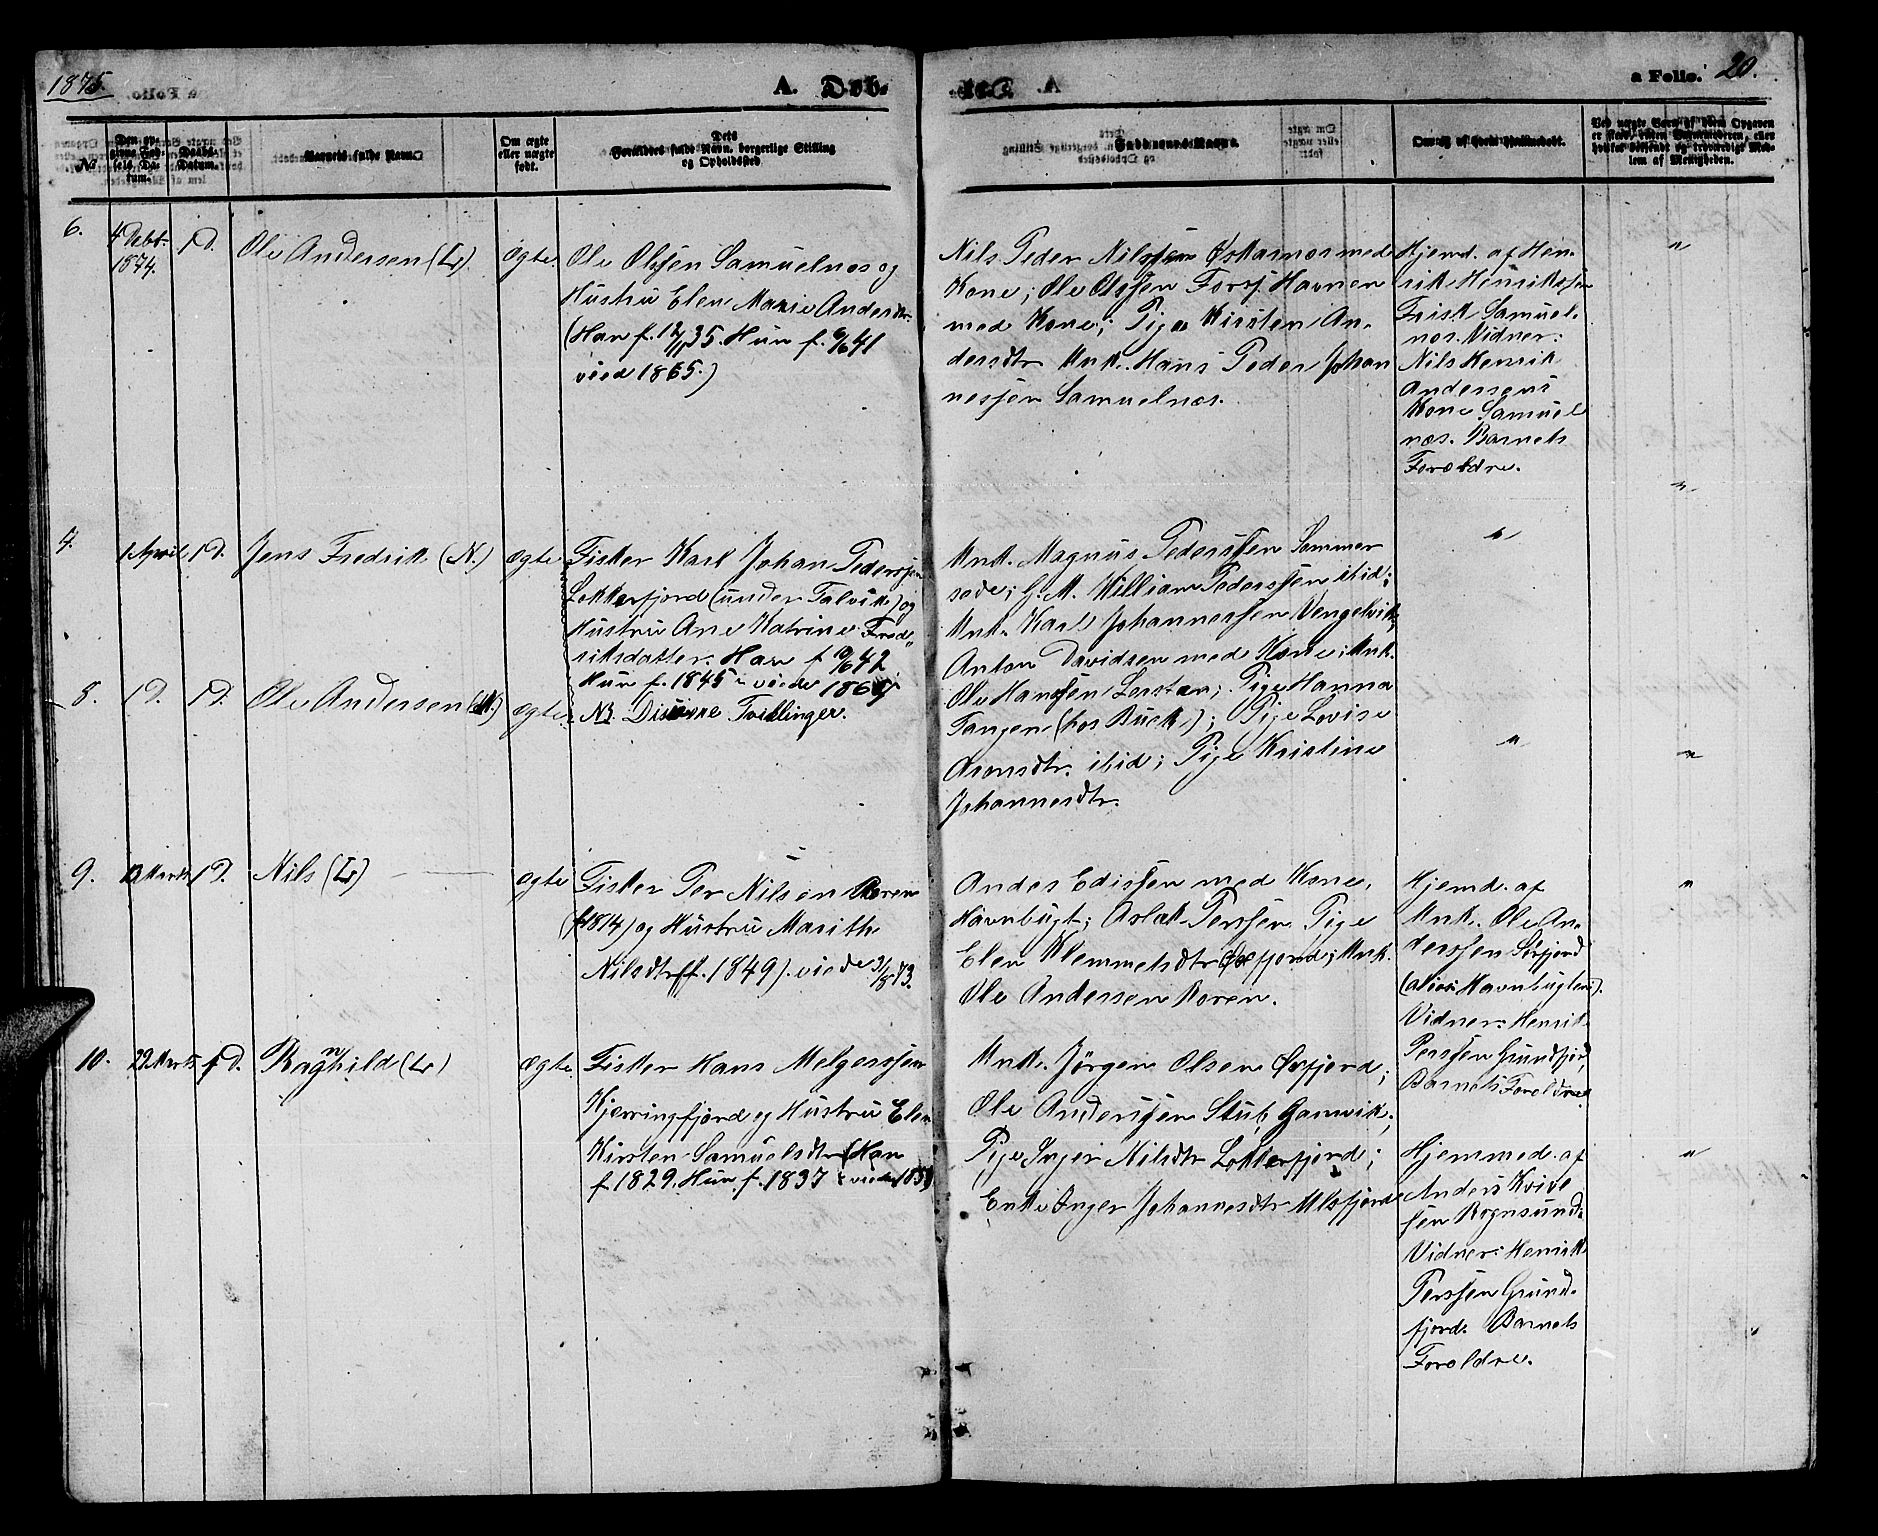 1875.
A. Døb.
a Folio. 20.
No
Den opgivne Fødsels-Datum.
Daabs-Datum.
Barnets fulde Navn.
Om ægte eller uægte født.
Dets Forældres fulde Navn, borgerlige Stilling og Opholdssted
Faddernes Navne.
Om og af hvem hjemmedøbt.
6.
4 Debr. 1874.
1 D.
Ole Andersen (L).
ægte.
Ole Olsen Samuelnæs og
Hustru Elen Marie Andersdtr.
(Han f. 35. Hun f. 41
viede 1865.)
Nils Peder Nilssen Oskarnæs med
Kone; Ole Olssen Forsf. Havnen
med Kone; Pige Kirsten An-
dersdtr Unk. Hans Peder Johan
nessen Samuelnæs.
Hjemd. af Hen-
rik Henrikssen
Frisk Samuel-
næs. Vidner:
Nils Henrik
Andersens
Kone Samuel
næs. Barnets
Forældre.
"
"
7.
1 April
1 D.
Jens Fredrik (N.)
ægte
Fisker Karl Johan Pederssen
Lekkerfjord (under Talvik) og
Hustru Ane Katrine Fred-
riksdatter. Han f. 42
Hun f. 1845 viede 1869
Unk. Magnus Pederssen Sommer
sede; G. M. William Pederssen ibid;
Unk. Karl Johannessen Vengelvik
Anton Davidsen med Kone; Unk.
Ole Hanssen Lerstan; Pige Hanna
Tangen (hos Buck); Pige Lovise
Aronsdtr. ibid; Pige Kristine
Johannesdtr.
"
8.
1 D.
1 D.
Ole Andersen (N.)
ægte.
NB. Disse ere Tvillinger.
"
"
9.
13 Marts
1 D.
Nils (L)
ægte
Fisker Per Nilsen Koren
(f. 1814) og Hustru Marith
Nilsdtr (f. 1849). viede 73.
Anders Edissen med Kone,
Havnbugt; Aslak Perssen Pige
Elen Klemmetsdtr Øxfjord; Unk.
Ole Andersen Koren.
Hjemd. af
Unk. Ole An-
derssen Sørfjord
(alias Havnbugten).
Vidner: Henrik
Perssen Grundfjord,
Barnets Forældre.
"
10.
22 Marts
1 D.
Ragnhild (L)
ægte.
Fisker Hans Melgerssen
Kjerringfjord og Hustru Elen
Kirsten Samuelsdtr (Han
f. 1829. Hun f. 1837 viede 1858)
Unk. Jörgen Olsen Øxfjord;
Ole Anderssen Stub Gamvik;
Pige Inger Nilsdtr Lekkerfjord;
Enke Inger Johannesdtr Ulsfjord
Hjemmed. af
Anders Kvive
sen Rognsund.
Vidner: Henrik
Perssen Grund-
fjord. Barnets
Forældre.
"